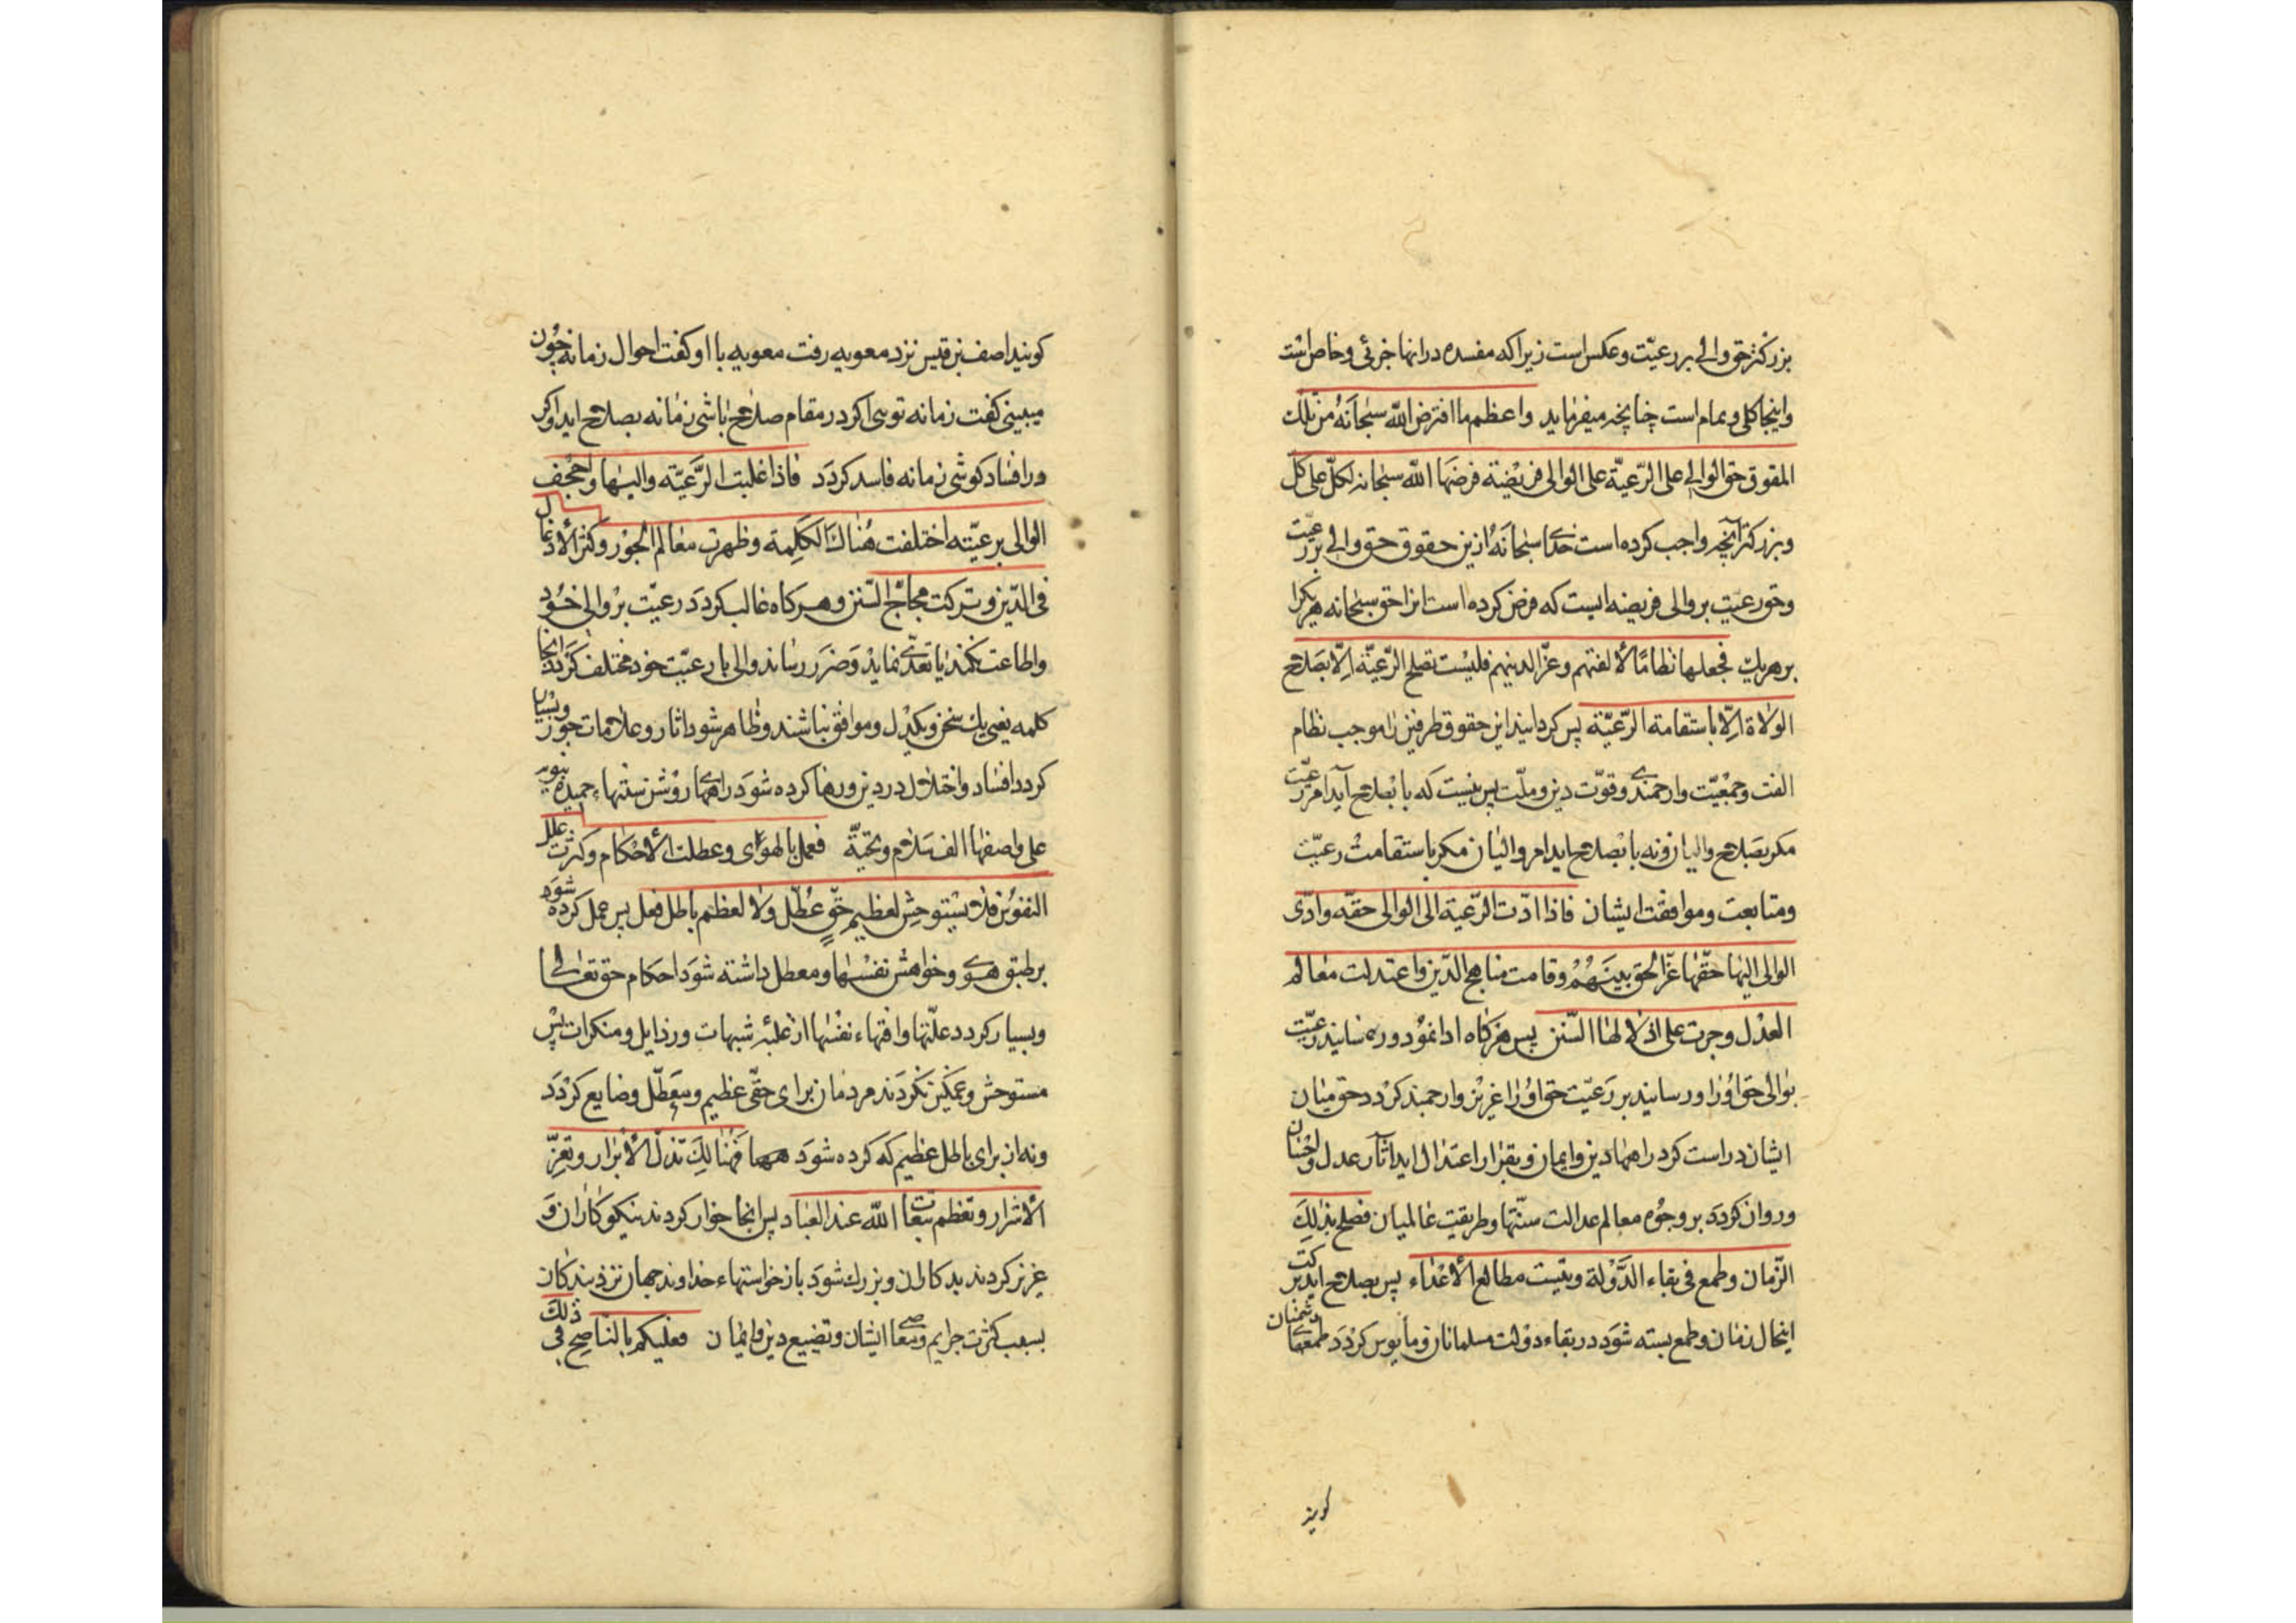 بزرکتر حق والی بر رعیّت و عکس است زیرا که مفسده در انها جزئی و خاص است
و اینجا کلی و تمام است چنانچه میفرماید واعظم ما افترض اللّه سبحانَهُ من تلك
الحقوق حق الوالی علی الرّعیّة علی الوالی فریضة فرضَها اللّه سبحانه لکلّ علی کل
و بزرکتر آنچه واجب کرده است خدای سبحانَهُ ازین حقوق حق والی بر رعیّت
و حق رعیّت بر والی فریضه ایست که فرض کرده است انرا حق سبحانه هر یکرا
بر هر یك فجعلها نظامًا لألفتهم وعزّا لدینهم فلیست تصلح الرّعیّة اِلّا بصَلاح
الولاة اِلّا باستقامة الرّعیّة پس کردانید این حقوق طرفین را موجب نظام
الفت و جمعیّت و ارجمندی و قوّت دین و ملّت پس نیست که با بصلاح آید امر رعیّت
مکر بصَلاح والیان و نه با بصلاح اید امر والیان مکر باستقامت رعیّت
و متابعت و موافقت ایشان فاذا ادّت الرّعیة الی الوالی حقّه وادّی
الوالی الیها حقّها عزّ الحق بینَهُمْ وقامت مناهج الدّین واعتدلت معالم
العدْل وجرت علی اذلالها السّنن پس هر کاه ادا نمود و رسانید رعیّت
بوالی حَق اوُرا و رسانید بر رَعیّت حق اوُرا عزیز و ارجمند کردد حق میان
ایشان و راست کردد راهها دین و ایمان و بقرار اعتدال اید اثار عدل و احسان
و روان کردَد بر وجوُه معالم عدالت سنّتها و طریقت عالمیان فصلح بذلِكَ
الزّمان وطمع فی بقاء الدَّوْلة ویئست مطامع الأعْداء پس بصلاح اید برکت
اینحال زمان و طمع بسته شوَد در بقاء دولت مسلمانان و مأیوس کردَد طمعهای دشمنان
کویند
کویند احنف بن قیس نزد معویه رفت معویه با او کفت احوال زمانه چون
میبینی کفت زمانه توی اکر در مقام صلاح باشی زمانه بصلاح اید و اکر
در افساد کوشی زمانه فاسد کردَد فاذا غلبت الرَّعیّة والیها واجحف
الوالی برعیّته اختلفت هُنالكَ الکَلِمة وظهرت معالم الجوْر وکثر الأدغال
فی الدّین وترکت محاجّ السّنن و هر کاه غالب کردَد رعیّت بر والی خود
و اطاعت نکنند یا تعدّی نماید وَ ضرَر رساند والی با رعیّت خود مختلف کردَد انجا
کلمه یعنی یك سخن و یکدل و موافق نباشند و ظاهر شود اثار و علامات جور و بسیار
کردد افساد و اختلال در دین و رها کرده شوَد راههای روْشن سنتهاء حمیده نبویه
علی واصفها الف سَلام و تحیّة فعمل بالهوَی وعطلت الأحکام وکثرت علل
النفوس فلا یستوحش لعظیم حقّ عُطّل ولا لعظم باطل فعل پس عمل کرده شوَد
بر طبق هوی و خواهش نفسها و معطل داشته شوَد احکام حق تعالی
و بسیار کردد علّتها و افتهاء نفسها از غلبهٔ شبهات و رذایل و منکرات پس
مستوحش و غمکین نکردَند مردمان برای حقّی عظیم و معَطّل و ضایع کردَد
و نه از برای باطل عظیم که کرده شوَد فهنالِكَ تذلّ الأبرار وتعزّ
الأشرار وتعظم تبعات اللّه عند العباد پس انجا خوار کردند نیکوکاران وَ
عزیز کردند بدکاران و بزرك شوَد بازخواستهاء خداوند جهان نزد بندکان
بسبب کثرت جرایم و معاصی ایشان و تضییع دین و ایمان فعلیکم بالتناصح فی ذلكَ